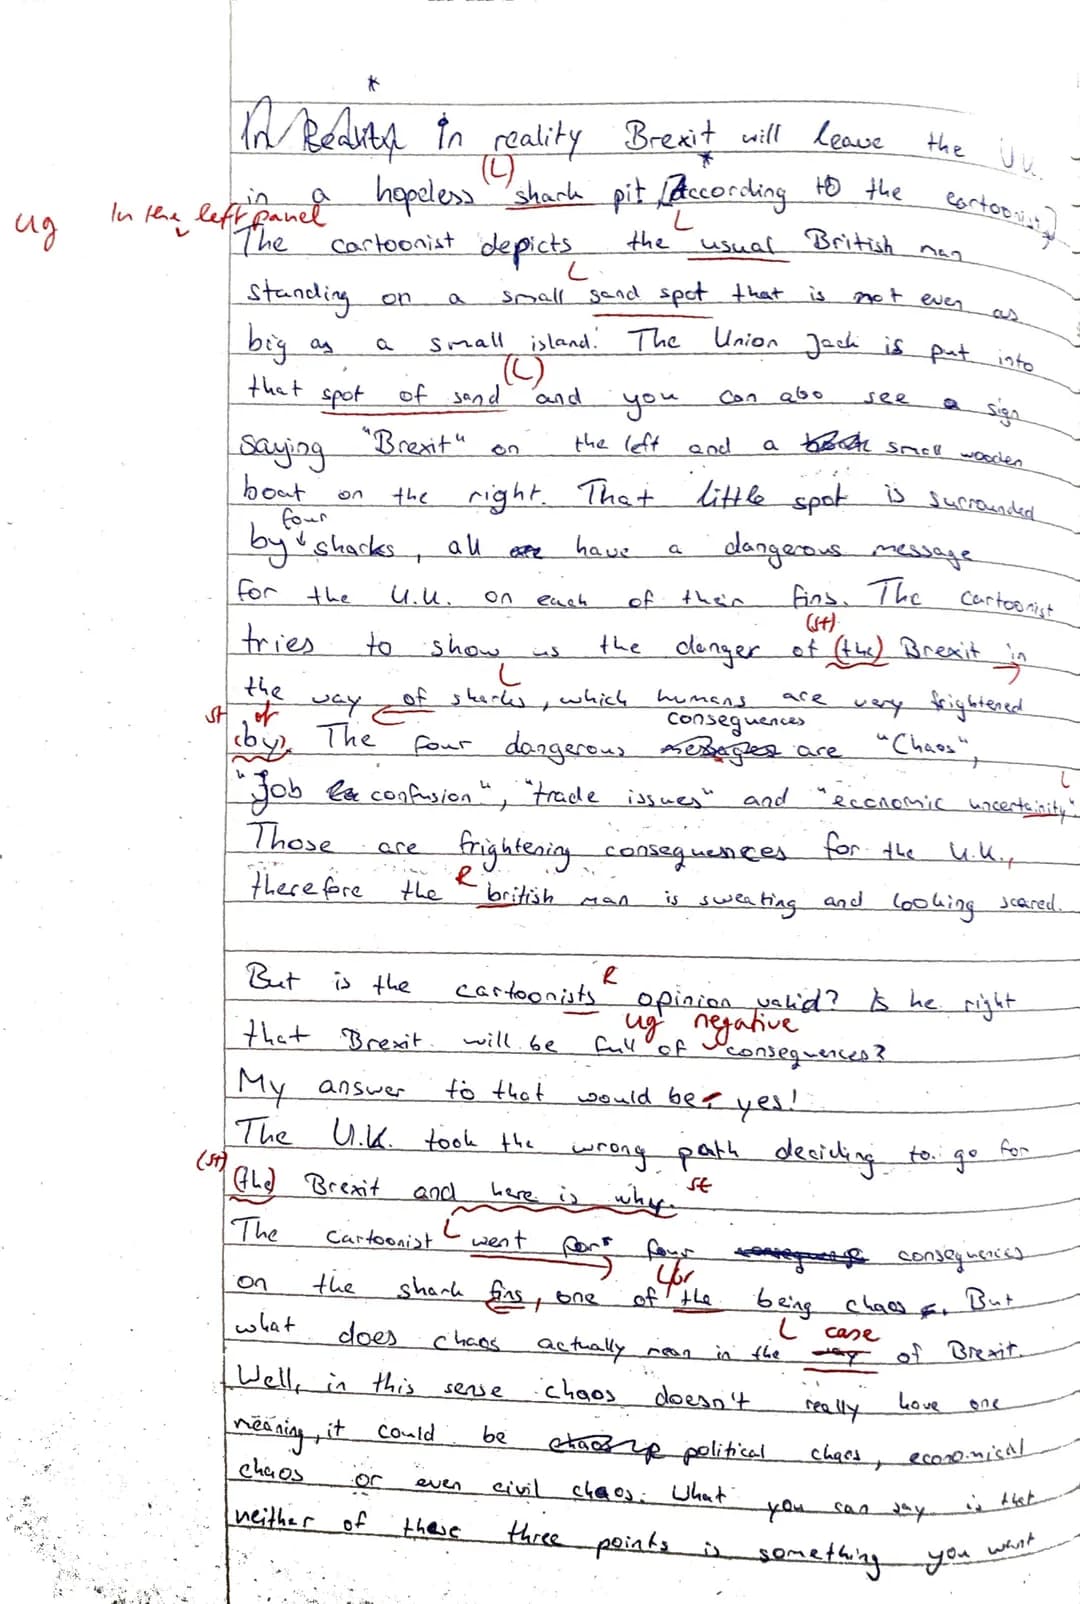 *
In Reality in reality Brexit will leave the U.K.
(L)
in a hopeless shark pit [According to the cartoonist]
ug In the left panel L
The cartoonist depicts the usual British man
L
standing on a small sand spot that is not even as
big as a small island. The Union Jack is put into
(L)
that spot of sand and you can also see a sign
saying "Brexit" on the left and a small wooden
boat on the right. That little spot is surrounded
four
by sharks, all have a dangerous message
for the U.K. on each of their fins. The cartoonist
(st)
tries to show us the danger of (the) Brexit in
L
the way of sharks, which humans are very frightened
st of consequences
(by). The four dangerous messages are "Chaos",
L
"Job confusion", "trade issues" and "economic uncertainity".
Those are frightening consequences for the U.K.,
R
therefore the british man is sweating and looking scared.
R
But is the cartoonists opinion valid? Is he right
ug negative
that Brexit will be full of consequences?
My answer to that would be yes!
The U.K. took the wrong path deciding to go for
(st) st
(the) Brexit and here is why.
L
The cartoonist went for four consequences
L/Gr
on the shark fins, one of the being chaos. But
L case
what does chaos actually mean in the way of Brexit.
Well, in this sense chaos doesn't really have one
meaning, it could be political chaos, economical
chaos or even civil chaos. What you can say is that
neither of these three points is something you want